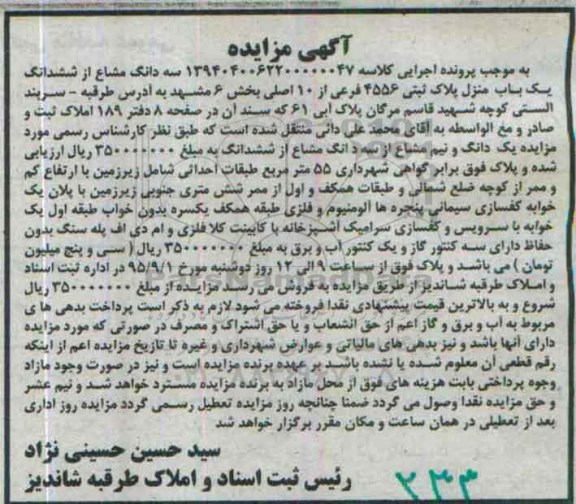 آگهی مزایده
به موجب پرونده اجرایی کلاسه ۱۳۹۴۰۴۰۰۶۲۲۰۰۰۰۰۰۴۷ سه دانگ مشاع از ششدانگ
یک باب منزل پلاک ثبتی ۴۵۵۶ فرعی از ۱۰ اصلی بخش ۶ مشهد به آدرس طرقبه - سربند
الستی کوچه شهید قاسم مرگان پلاک آبی ۶۱ که سند آن در صفحه ۸ دفتر ۱۸۹ املاک ثبت و
صادر و مع الواسطه به آقای محمد علی دائی منتقل شده است که طبق نظر کارشناس رسمی مورد
مزایده یک دانگ و نیم مشاع از سه دانگ مشاع از ششدانگ به مبلغ ۳۵۰۰۰۰۰۰۰ ریال ارزیابی
شده و پلاک فوق برابر گواهی شهرداری ۵۵ متر مربع طبقات احداثی شامل زیرزمین با ارتفاع کم
و ممر از کوچه ضلع شمالی و طبقات همکف و اول از ممر شش متری جنوبی زیرزمین با پلان یک
خوابه کفسازی سیمانی پنجره ها آلومنیوم و فلزی طبقه همکف یکسره بدون خواب طبقه اول یک
خوابه با سرویس و کفسازی سرامیک آشپزخانه با کابینت کلا فلزی و ام دی اف پله سنگ بدون
حفاظ دارای سه کنتور گاز و یک کنتور آب و برق به مبلغ ۳۵۰۰۰۰۰۰۰ ریال ( سی و پنج میلیون
تومان ) می باشد و پلاک فوق از ساعت ۹ الی ۱۲ روز دوشنبه مورخ ۹۵/۷/۱ در اداره ثبت اسناد
و املاک طرقبه شاندیز از طریق مزایده به فروش می رسد مزایده از مبلغ ۳۵۰۰۰۰۰۰۰ ریال
شروع و به بالاترین قیمت پیشنهادی نقدا فروخته می شود لازم به ذکر است پرداخت بدهی های
مربوط به آب و برق و گاز اعم از حق انشعاب و یا حق اشتراک و مصرف در صورتی که مورد مزایده
دارای آنها باشد و نیز بدهی های مالیاتی و عوارض شهرداری و غیره تا تاریخ مزایده اعم از اینکه
رقم قطعی آن معلوم شده یا نشده باشد بر عهده برنده مزایده است و نیز در صورت وجود مازاد
وجوه پرداختی بابت هزینه های فوق از محل مازاد به برنده مزایده مسترد خواهد شد و نیم عشر
و حق مزایده نقدا وصول می گردد ضمنا چنانچه روز مزایده تعطیل رسمی گردد مزایده روز اداری
بعد از تعطیلی در همان ساعت و مکان مقرر برگزار خواهد شد
سید حسین حسینی نژاد
رئیس ثبت اسناد و املاک طرقبه شاندیز
۲۳۳